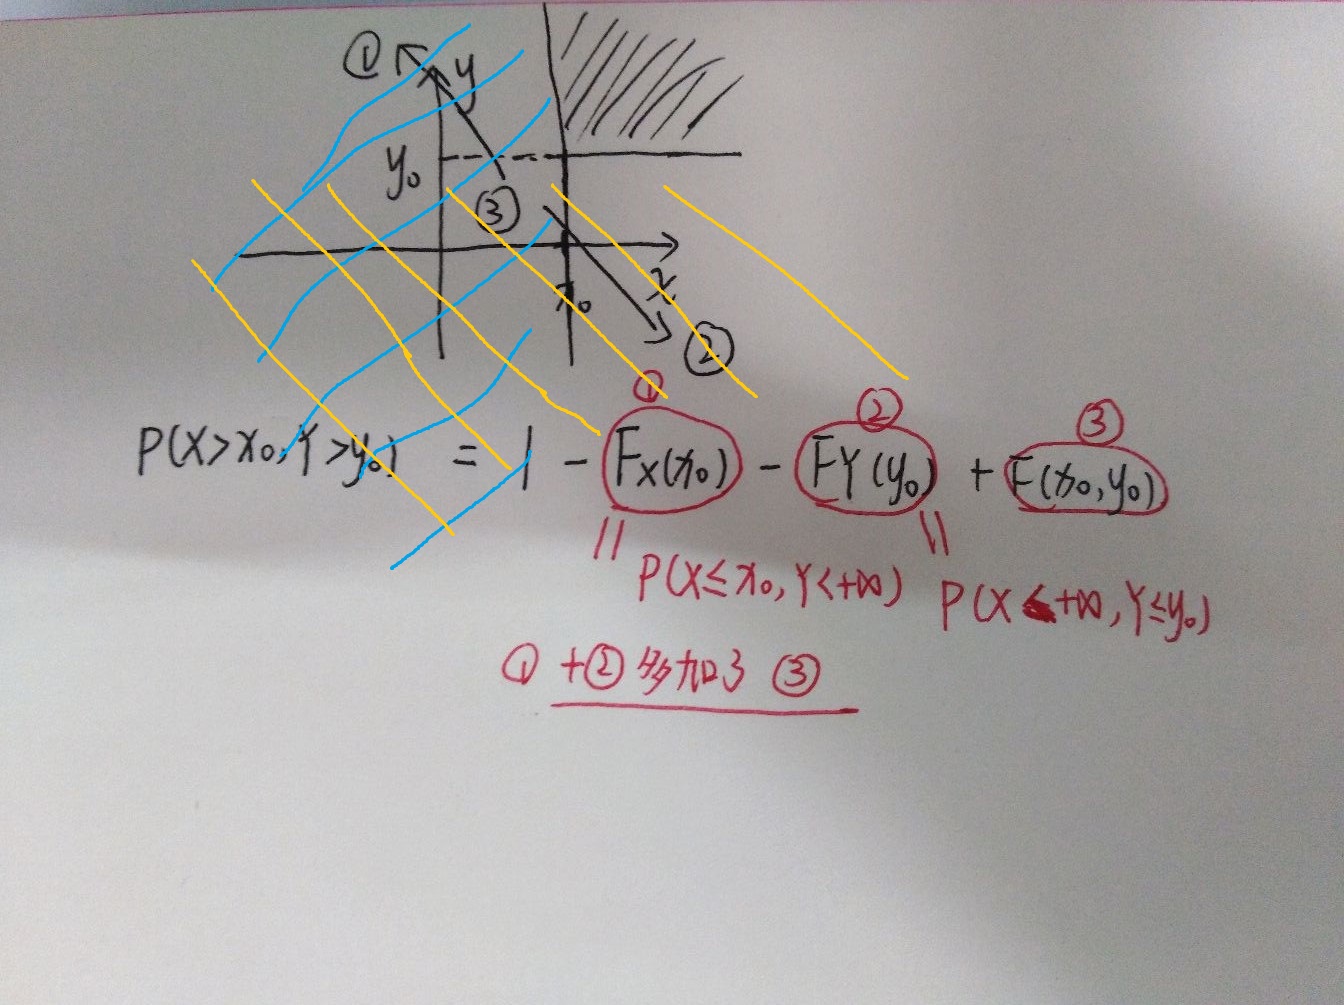 ① y
y₀
③
x₀ x
②
① ② ③
P(X>x₀,Y>y₀) = 1 - Fx(x₀) - FY(y₀) + F(x₀,y₀)
|| ||
P(X≤x₀,Y<+∞) P(X<+∞,Y≤y₀)
①+②多加了③